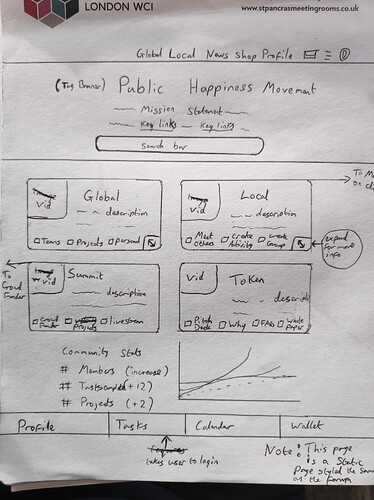 LONDON WC1
www.stpancrasmeetingrooms.co.uk
Global Local News Shop Profile
(Top Banner) Public Happiness Movement
Mission Statement
Key links Key links
Search bar
vid Global
description
Teams Projects personal
vid Local
description
Meet Others Create Activity Create Group
expand for more info
To M
on cl
To Crowd Funder
vid Summit
description
Crowd Funder Projects livestream
vid Token
descripti
Pitch Deck Why FAQ White Paper
Community Stats
# Members (increase)
## Tasks completed +12)
# Projects (+2)
Profile Tasks Calendar Wallet
features
takes user to login
Note: This page
is a static
Page styled the same
as the forum